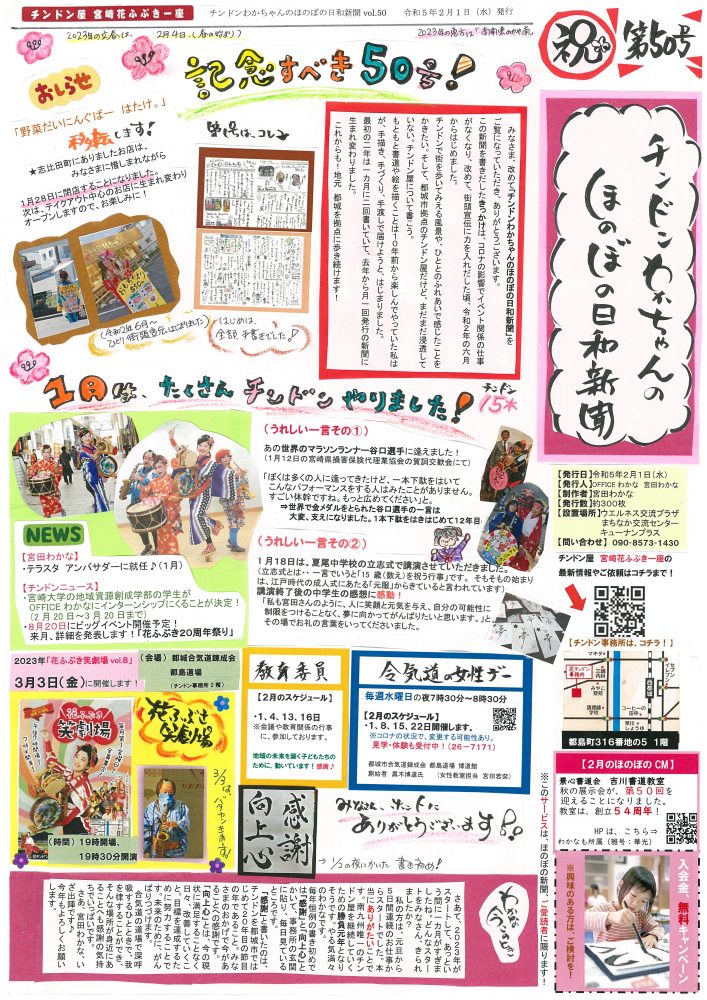 チンドン屋 宮崎花ふぶき一座
チンドンわかちゃんのほのぼの日和新聞 vol.50 令和5年2月1日(水)発行
2023年の立春は、2月4日。(春の始まり)
祝
第50号
チンドンわかちゃんの
ほのぼの日和新聞
記念すべき50号!
おしらせ
「野菜だいにんぐばー はたけ。」
移転します!
★志比田町にありましたお店は、
みなさまに惜しまれながら
1月28日に閉店することになりました。
次は、テイクアウト中心のお店に生まれ変わり
オープンしますので、お楽しみに!
(令和2年6月〜
ひとり街頭宣伝はじまりました)
第1号は、コレ
(はじめは、
全部手書きでした!)
みなさま、改めて「チンドンわかちゃんのほのぼの日和新聞」を
ご覧になっていただき、ありがとうございます。
この新聞を書きだしたきっかけは、コロナの影響でイベント関係の仕事
がなくなり、改めて、街頭宣伝に力を入れだした頃、令和2年の六月
からはじめました。
チンドンで街を歩いてみえる風景や、ひととのふれあいで感じたことを
かきたい。そして、都城市拠点のチンドン屋だけど、まだまだ浸透して
いない。チンドン屋について書こう。
もともと書道や絵を描くことは10年前から楽しんでやっていた私は
が、手描き、手づくり、手渡しで届けようと、はじまりました。
最初の二年は一カ月に二回書いていて、去年から月一回発行の新聞に
生まれ変わりました。
これからも!地元 都城を拠点に歩き続けます!
1月は、たくさんチンドンやりました!
チンドン
15本
【発行日】令和5年2月1日(水)
【発行人】OFFICE わかな 宮田わかな
【制作者】宮田わかな
【発行数】約300枚
【設置場所】ウエルネス交流プラザ
まちなか交流センター
キューナンプラス
【問い合わせ】090-8573-1430
チンドン屋 宮崎花ふぶき一座の
最新情報やご依頼はコチラまで!
【チンドン事務所は、コチラ!】
花チンドン
事務所
都島町316番地の5 1階
(うれしい一言その①)
あの世界のマラソンランナー谷口選手に逢えました!
(1月12日の宮崎県損害保険代理業協会の賀詞交歓会にて)
「ぼくは多くの人に逢ってきたけど、一本下駄をはいて
こんなパフォーマンスをする人はみたことがありません。
すごい体幹ですね。もっと広めてください」と。
⇒世界で金メダルをとられた谷口選手の一言は
大変、支えになりました。1本下駄をはきはじめて12年目
(うれしい一言その②)
1月18日は、夏尾中学校の立志式で講演させていただきました。
(立志式とは・・一言でいうと「15 歳(数え)を祝う行事」です。 そもそもの始まり
は、江戸時代の成人式にあたる「元服」からきていると言われています)
講演終了後の中学生の感想に感動!
「私も宮田さんのように、人に笑顔と元気を与え、自分の可能性に
制限をつけることなく、夢に向かってがんばりたいと思います。」と
その場でお礼の言葉をいってくださいました。
NEWS
【宮田わかな】
・テラスタ アンバサダーに就任♪(1月)
【チンドンニュース】
・宮崎大学の地域資源創成学部の学生が
OFFICE わかなにインターンシップにくることが決定!
(2月20日〜3月20日まで)
・8月20日にビッグイベント開催予定!
来月、詳細を発表します!「花ふぶき20周年祭り」
2023年「花ふぶき笑劇場 vol.8」
3月3日(金)に開催します!
(会場) 都城合気道錬成会
都島道場
(チンドン事務所 2階)
花ふぶき
笑劇場
花ふぶき
笑劇場
(時間)19時開場、
19時30分開演
教育委員
【2月のスケジュール】
・1、4、13、16日
※会議や教育関係の行事
に、参加しております。
地域の未来を築く子どもたちの
ために、動いています!感謝♪
合気道の女性デー
毎週水曜日の夜7時30分〜8時30分
【2月のスケジュール】
・1、8、15、22日開催します。
※コロナの状況で、変更する可能性あり。
見学・体験も受付中!(26-7171)
都城市合気道錬成会 都島道場 博道館
創始者 黒木博道氏 (女性教室担当 宮田若奈)
感謝
向上心
みなさん、ホントに
ありがとうございます!
→1/2の夜にかいた書き初め!
【2月のほのぼの CM】
景心書道会 吉川書道教室
秋の展示会が、第50回を
迎えることになりました。
教室は、創立54周年!
HP は、こちら⇒
わかなも所属(雅号:華光)
入会金、無料キャンペーン
※興味のある方は、ご検討を!
※このサービスは、ほのぼの新聞、ご愛読者に限ります!
わかなの
今のこころ
さあて、2023年が
スタートして、あっとい
う間に一カ月がすぎま
したね。どんなスター
トをみなさん、きられ
ましたか?
私の方は、元旦から
5日間連続のお仕事か
らスタートでした。本
当にありがたいことで
す。南九州唯一のチン
ドン屋を継続していく
ための勝負元年となり
そうです。やる気満々
のわかなです。
毎年恒例の書き初めで
は「感謝」と「向上心」と
かいて、事務所の玄関
に貼り、毎日見ている
ところです。
「感謝」と書いたのは、
チンドンを都城ではじ
めて20年目の節目
の年であること。みな
さまのおかげで今があ
ることへの感謝です。
「向上心」とは、今の現
状に満足することなく
日々、改善していくこ
と。目標を達成するた
めに努力することで
す。未来のために、がん
ばりつづけます。
合気道の道場で深呼
吸をするひとときで、我
を律することができ、
そんな場所が身近にあ
ることにも感謝の気持
ちでいっぱいです。
さあ、宮田わかな、い
ざ出陣です!
今年もよろしくお願い
します。